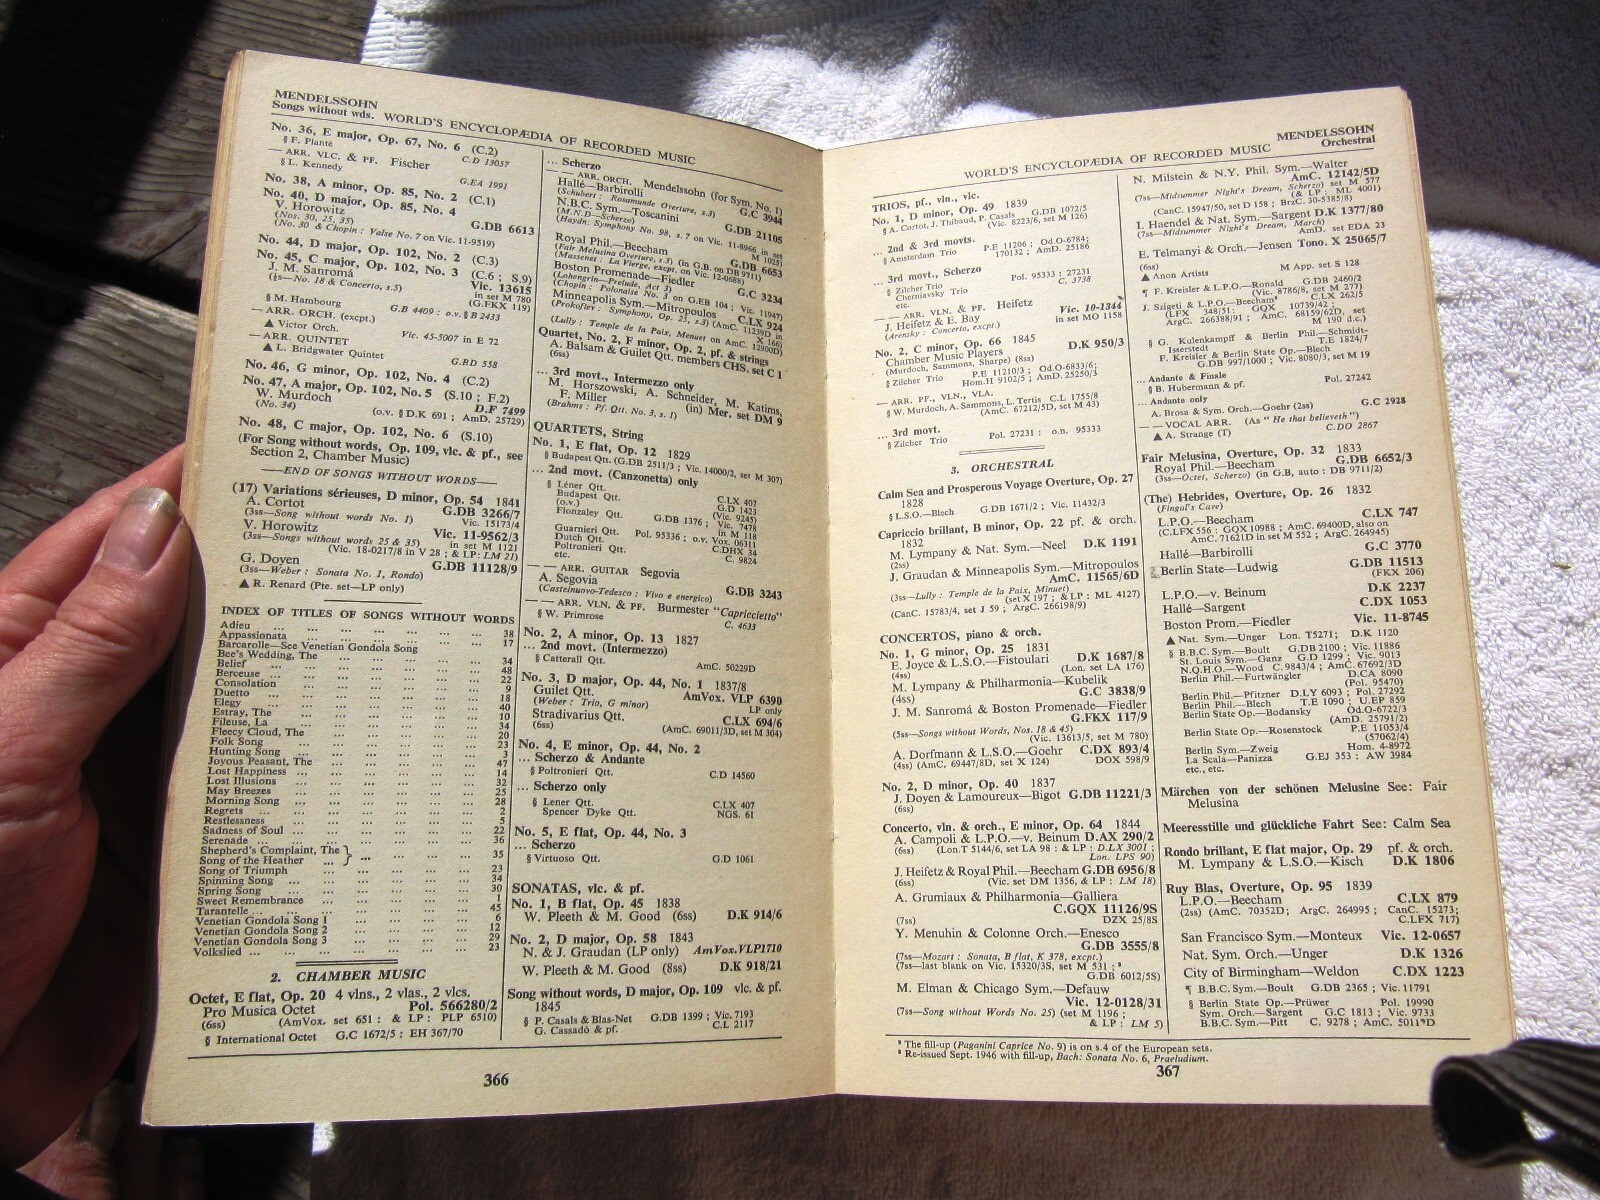 MENDELSSOHN
Songs without wds. WORLD'S ENCYCLOPÆDIA OF RECORDED MUSIC
No. 36, E major, Op. 67, No. 6 (C.2)
§ F. Planté C.D 13057
— ARR. VLC. & PF. Fischer
§ L. Kennedy G.EA 1991
No. 38, A minor, Op. 85, No. 2 (C.1)
No. 40, D major, Op. 85, No. 4
V. Horowitz G.DB 6613
(Nos. 30, 25, 35)
(No. 30 & Chopin: Valse No. 7 on Vic. 11-9519)
No. 44, D major, Op. 102, No. 2 (C.3)
No. 45, C major, Op. 102, No. 3 (C.6 ; S.9)
J. M. Sanromá Vic. 13615
(½s—No. 18 & Concerto, s.5) in set M 780
(G.FKX 119)
§ M. Hambourg G.B 4409 : o.v. § B 2433
— ARR. ORCH. (excpt.)
▲ Victor Orch. Vic. 45-5007 in E 72
— ARR. QUINTET
▲ L. Bridgwater Quintet G.BD 558
No. 46, G minor, Op. 102, No. 4 (C.2)
No. 47, A major, Op. 102, No. 5 (S.10 ; F.2)
W. Murdoch D.F 7499
(No. 34) (o.v. § D.K 691 ; AmD. 25729)
No. 48, C major, Op. 102, No. 6 (S.10)
(For Song without words, Op. 109, vlc. & pf., see
Section 2, Chamber Music)
—END OF SONGS WITHOUT WORDS—
(17) Variations sérieuses, D minor, Op. 54 1841
A. Cortot G.DB 3266/7
(3ss—Song without words No. 1) Vic. 15173/4
V. Horowitz Vic. 11-9562/3
(3ss—Songs without words 25 & 35) in set M 1121
(Vic. 18-0217/8 in V 28 ; & LP: LM 21)
G. Doyen G.DB 11128/9
(3ss—Weber : Sonata No. 1, Rondo)
▲ R. Renard (Pte. set—LP only)
INDEX OF TITLES OF SONGS WITHOUT WORDS
Adieu ... 38
Appassionata ... 17
Barcarolle—See Venetian Gondola Song
Bee's Wedding, The ... 34
Belief ... 48
Berceuse ... 22
Consolation ... 9
Duetto ... 18
Elegy ... 40
Estray, The ... 10
Fileuse, La ... 34
Fleecy Cloud, The ... 20
Folk Song ... 23
Hunting Song ... 3
Joyous Peasant, The ... 47
Lost Happiness ... 14
Lost Illusions ... 32
May Breezes ... 25
Morning Song ... 28
Regrets ... 2
Restlessness ... 5
Sadness of Soul ... 22
Serenade ... 36
Shepherd's Complaint, The }
Song of the Heather ... } ... 35
Song of Triumph ... 23
Spinning Song ... 34
Spring Song ... 30
Sweet Remembrance ... 1
Tarantelle ... 45
Venetian Gondola Song 1 ... 6
Venetian Gondola Song 2 ... 12
Venetian Gondola Song 3 ... 29
Volkslied ... 23
2. CHAMBER MUSIC
Octet, E flat, Op. 20 4 vlns., 2 vlas., 2 vlcs.
Pro Musica Octet Pol. 566280/2
(6ss) (AmVox. set 651 : & LP : PLP 6510)
§ International Octet G.C 1672/5 ; EH 367/70
... Scherzo
— ARR. ORCH. Mendelssohn (for Sym. No. 1)
Hallé—Barbirolli G.C 3944
(Schubert : Rosamunde Overture, s.3)
N.B.C. Sym.—Toscanini G.DB 21105
(M.N.D—Scherzo)
(Haydn: Symphony No. 98, s.7 on Vic. 11-8966 in set
M 1025)
Royal Phil.—Beecham G.DB 6653
(Fair Melusina Overture, s.3) (in G.B. on DB 9711)
(Massenet : La Vierge, excpt. on Vic. 12-0688)
Boston Promenade—Fiedler G.C 3234
(Lohengrin—Prelude, Act 3)
(Chopin : Polonaise No. 3 on G.EB 104 ; Vic. 11947)
Minneapolis Sym.—Mitropoulos C.LX 924
(Prokofiev : Symphony, Op. 25, s.3) (AmC. 11239D in
X 166)
(Lully : Temple de la Paix, Menuet on AmC. 12900D)
Quartet, No. 2, F minor, Op. 2, pf. & strings
A. Balsam & Guilet Qtt. members CHS. set C 1
(6ss)
... 3rd movt., Intermezzo only
M. Horszowski, A. Schneider, M. Katims,
F. Miller (in) Mer. set DM 9
(Brahms : Pf. Qtt. No. 3, s.1)
QUARTETS, String
No. 1, E flat, Op. 12 1829
§ Budapest Qtt. (G.DB 2511/3 ; Vic. 14000/2, set M 307)
... 2nd movt. (Canzonetta) only
§ Léner Qtt. C.LX 407
Budapest Qtt. G.D 1423
(o.v.) (Vic. 9245)
Flonzaley Qtt. G.DB 1376 ; Vic. 7478
in M 118
Guarnieri Qtt. Pol. 95336 ; o.v. Vox. 06311
Dutch Qtt. C.DHX 34
Poltronieri Qtt. C. 9824
etc.
— — ARR. GUITAR Segovia
A. Segovia G.DB 3243
(Castelnuovo-Tedesco : Vivo e energico)
— ARR. VLN. & PF. Burmester "Capriccietto"
§ W. Primrose C. 4633
No. 2, A minor, Op. 13 1827
... 2nd movt. (Intermezzo)
§ Catterall Qtt. AmC. 50229D
No. 3, D major, Op. 44, No. 1 1837/8
Guilet Qtt. AmVox. VLP 6390
(Weber : Trio, G minor) LP only
Stradivarius Qtt. C.LX 694/6
(6ss) (AmC. 69011/3D, set M 304)
No. 4, E minor, Op. 44, No. 2
... Scherzo & Andante
§ Poltronieri Qtt. C.D 14560
... Scherzo only
§ Lener Qtt. C.LX 407
Spencer Dyke Qtt. NGS. 61
No. 5, E flat, Op. 44, No. 3
... Scherzo
§ Virtuoso Qtt. G.D 1061
SONATAS, vlc. & pf.
No. 1, B flat, Op. 45 1838
W. Pleeth & M. Good (6ss) D.K 914/6
No. 2, D major, Op. 58 1843
N. & J. Graudan (LP only) AmVox.VLP1710
W. Pleeth & M. Good (8ss) D.K 918/21
Song without words, D major, Op. 109 vlc. & pf.
1845
§ P. Casals & Blas-Net G.DB 1399 ; Vic. 7193
G. Cassadò & pf. C.L 2117
366
MENDELSSOHN
WORLD'S ENCYCLOPÆDIA OF RECORDED MUSIC Orchestral
TRIOS, pf., vln., vlc.
No. 1, D minor, Op. 49 1839
§ A. Cortot, J. Thibaud, P. Casals G.DB 1072/5
(Vic. 8223/6, set M 126)
2nd & 3rd movts.
§ Amsterdam Trio P.E 11206 ; Od.O-6784;
170132 ; AmD. 25186
... 3rd movt., Scherzo
§ Zilcher Trio Pol. 95333 : 27231
Cherniavsky Trio C. 3738
etc.
— — ARR. VLN. & PF. Heifetz
J. Heifetz & E. Bay Vic. 10-1344
(Arensky : Concerto, excpt.) in set MO 1158
No. 2, C minor, Op. 66 1845
Chamber Music Players D.K 950/3
(Murdoch, Sammons, Sharpe) (8ss)
§ Zilcher Trio P.E 11210/3 ; Od.O-6833/6;
Hom.H 9102/5 ; AmD. 25250/3
— ARR. PF., VLN., VLA.
§ W. Murdoch, A. Sammons, L. Tertis C.L 1755/8
(AmC. 67212/5D, set M 43)
... 3rd movt.
§ Zilcher Trio Pol. 27231 : o.n. 95333
3. ORCHESTRAL
Calm Sea and Prosperous Voyage Overture, Op. 27
1828
§ L.S.O.—Blech G.DB 1671/2 ; Vic. 11432/3
Capriccio brillant, B minor, Op. 22 pf. & orch.
1832
M. Lympany & Nat. Sym.—Neel D.K 1191
(2ss)
J. Graudan & Minneapolis Sym.—Mitropoulos
AmC. 11565/6D
(3ss—Lully : Temple de la Paix, Minuet)
(set X 197 ; & LP : ML 4127)
(CanC. 15783/4, set J 59 ; ArgC. 266198/9)
CONCERTOS, piano & orch.
No. 1, G minor, Op. 25 1831
E. Joyce & L.S.O.—Fistoulari D.K 1687/8
(4ss) (Lon. set LA 176)
M. Lympany & Philharmonia—Kubelik
(4ss) G.C 3838/9
J. M. Sanromá & Boston Promenade—Fiedler
G.FKX 117/9
(5ss—Songs without Words, Nos. 18 & 45)
(Vic. 13613/5, set M 780)
A. Dorfmann & L.S.O.—Goehr C.DX 893/4
(4ss) (AmC. 69447/8D, set X 124) DOX 598/9
No. 2, D minor, Op. 40 1837
J. Doyen & Lamoureux—Bigot G.DB 11221/3
(6ss)
Concerto, vln. & orch., E minor, Op. 64 1844
A. Campoli & L.P.O.—v. Beinum D.AX 290/2
(6ss) (Lon.T 5144/6, set LA 98 : & LP : D.LX 3001 ;
Lon. LPS 90)
J. Heifetz & Royal Phil.—Beecham G.DB 6956/8
(6ss) (Vic. set DM 1356, & LP : LM 18)
A. Grumiaux & Philharmonia—Galliera
C.GQX 11126/9S
(7ss) DZX 25/8S
Y. Menuhin & Colonne Orch.—Enesco
G.DB 3555/8
(7ss—Mozart : Sonata, B flat, K 378, excpt.)
(7ss—last blank on Vic. 15320/3S, set M 531 ;
G.DB 6012/5S)
M. Elman & Chicago Sym.—Defauw
Vic. 12-0128/31
(7ss—Song without Words No. 25) (set M 1196 ;
& LP : LM 5)
N. Milstein & N.Y. Phil. Sym.—Walter
AmC. 12142/5D
(7ss—Midsummer Night's Dream, Scherzo) set M 577
(& LP : ML 4001)
(CanC. 15947/50, set D 158 ; BrzC. 30-5385/8)
I. Haendel & Nat. Sym.—Sargent D.K 1377/80
(7ss—Midsummer Night's Dream, March)
AmD. set EDA 23
E. Telmanyi & Orch.—Jensen Tono. X 25065/7
(6ss)
▲ Anon Artists M App. set S 128
¶ F. Kreisler & L.P.O.—Ronald G.DB 2460/2
(Vic. 8786/8, set M 277)
J. Szigeti & L.P.O.—Beecham C.LX 262/5
(LFX 348/51: GQX 10739/42 ;
ArgC. 266388/91 ; AmC. 68159/62D, set
M 190 d.c.)
§ G. Kulenkampff & Berlin Phil.—Schmidt-
Isserstedt T.E 1824/7
F. Kreisler & Berlin State Op.—Blech
G.DB 997/1000 ; Vic. 8080/3, set M 19
... Andante & Finale
§ B. Hubermann & pf. Pol. 27242
... Andante only
A. Brosa & Sym. Orch.—Goehr (2ss) G.C 2928
— — VOCAL ARR. (As "He that believeth")
▲ A. Strange (T) C.DO 2867
Fair Melusina, Overture, Op. 32 1833
Royal Phil.—Beecham G.DB 6652/3
(3ss—Octet, Scherzo) (in G.B, auto : DB 9711/2)
(The) Hebrides, Overture, Op. 26 1832
(Fingal's Cave)
L.P.O.—Beecham C.LX 747
(C.LFX 556 : GQX 10988 ; AmC. 69400D, also on
AmC. 71621D in set M 552 ; ArgC. 264945)
Hallé—Barbirolli G.C 3770
Berlin State—Ludwig G.DB 11513
(FKX 206)
L.P.O.—v. Beinum D.K 2237
Hallé—Sargent C.DX 1053
Boston Prom.—Fiedler Vic. 11-8745
▲ Nat. Sym.—Unger Lon. T5271; D.K 1120
§ B.B.C. Sym.—Boult G.DB 2100 ; Vic. 11886
St. Louis Sym.—Ganz G.D 1299 ; Vic. 9013
N.Q.H.O.—Wood C. 9843/4 ; AmC. 67692/3D
Berlin Phil.—Furtwängler D.CA 8090
(Pol. 95470)
Berlin Phil.—Pfitzner D.LY 6093 ; Pol. 27292
Berlin Phil.—Blech T.E 1090 ; U.EP 859
Berlin State Op.—Bodansky Od.O-6722/3
(AmD. 25791/2)
Berlin State Op.—Rosenstock P.E 11053/4
(57062/4)
Berlin Sym.—Zweig Hom. 4-8972
La Scala—Panizza G.EJ 353 : AW 3984
etc., etc.
Märchen von der schönen Melusine See: Fair
Melusina
Meeresstille und glückliche Fahrt See: Calm Sea
Rondo brillant, E flat major, Op. 29 pf. & orch.
M. Lympany & L.S.O.—Kisch D.K 1806
Ruy Blas, Overture, Op. 95 1839
L.P.O.—Beecham C.LX 879
(2ss) (AmC. 70352D ; ArgC. 264995 ; CanC. 15273;
C.LFX 717)
San Francisco Sym.—Monteux Vic. 12-0657
Nat. Sym. Orch.—Unger D.K 1326
City of Birmingham—Weldon C.DX 1223
¶ B.B.C. Sym.—Boult G.DB 2365 ; Vic. 11791
§ Berlin State Op.—Prüwer Pol. 19990
Sym. Orch.—Sargent G.C 1813 ; Vic. 9733
B.B.C. Sym.—Pitt C. 9278 ; AmC. 5011*D
The fill-up (Paganini Caprice No. 9) is on s.4 of the European sets.
Re-issued Sept. 1946 with fill-up, Bach: Sonata No. 6, Praeludium.
367